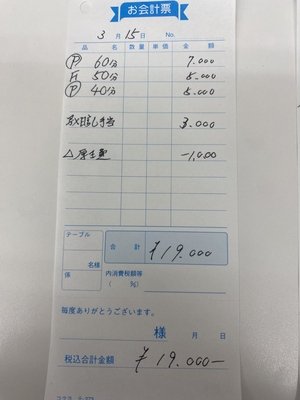 お会計票
3月15日 No.
品名 数量 単価 金額
Ⓟ 60分 7.000
F 50分 5.000
Ⓟ 40分 5.000
手当 3.000
△厚生費 -1,000
テーブル
名様
係
合計 ¥19.000
内消費税額等
( %)
毎度ありがとうございます。
様 月 日
税込合計金額 ¥19.000-